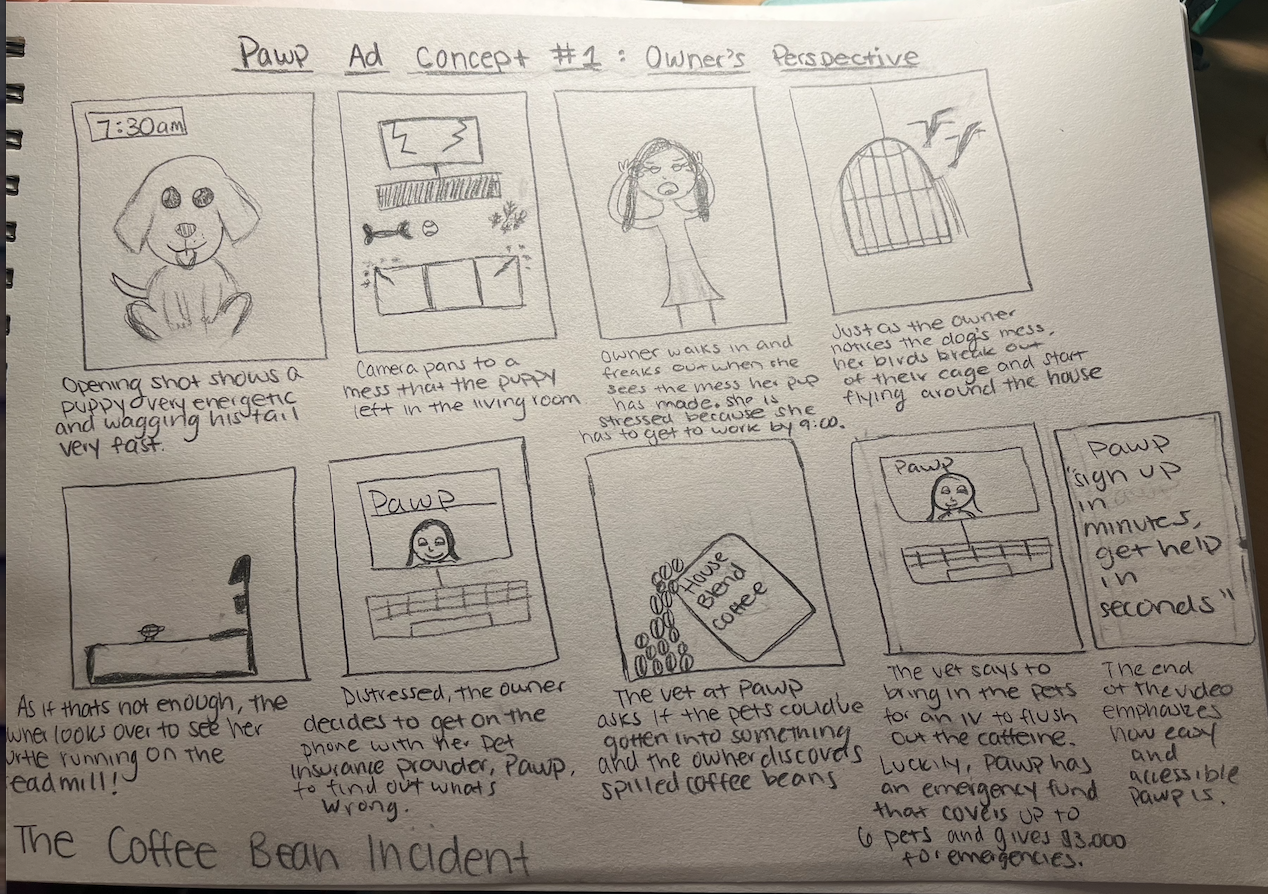 Pawp Ad Concept #1: Owner's Perspective
7:30am
Opening shot shows a
puppy very energetic
and wagging his tail
very fast.
Camera pans to a
mess that the puppy
left in the living room
Owner walks in and
freaks out when she
sees the mess her pup
has made. she is
stressed because she
has to get to work by 9:00.
Just as the owner
notices the dog's mess,
her birds break out
of their cage and start
flying around the house
As if thats not enough, the
wner looks over to see her
urtle running on the
eadmill!
Pawp
Distressed, the owner
decides to get on the
phone with her pet
insurance provider, Pawp,
to find out what's
wrong.
House
Blend
Coffee
The vet at Pawp
asks if the pets could've
gotten into something
and the owner discovers
spilled coffee beans
Pawp
The vet says to
bring in the pets
for an IV to flush
out the caffeine.
Luckily, Pawp has
an emergency fund
that covers up to
6 pets and gives $3,000
for emergencies.
Pawp
"sign up
in
minutes,
get help
in
seconds"
The end
of the video
emphasizes
how easy
and
accessible
Pawp is.
The Coffee Bean Incident